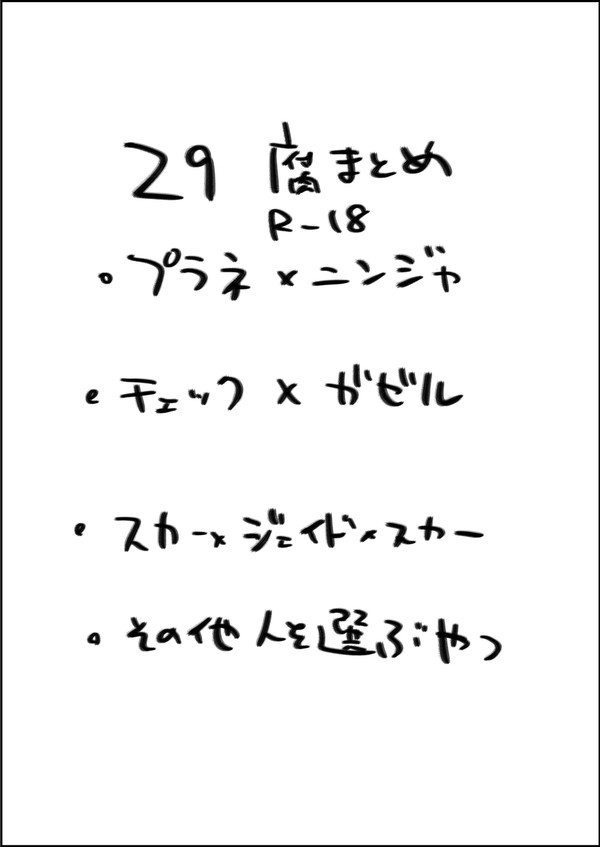 29 腐まとめ
R-18
。プラネ×ニンジャ
。チェック × ガゼル
。スカー×ジェイド×スカー
。その他人を選ぶやつ